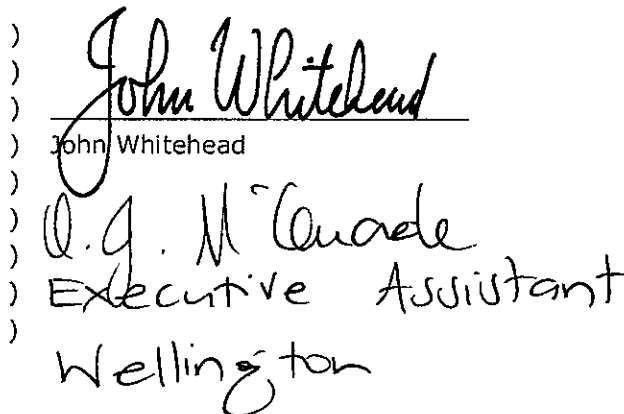 )
) John Whitehead
)
) John Whitehead
)
) J. McQuade
)
) Executive Assistant
)
Wellington